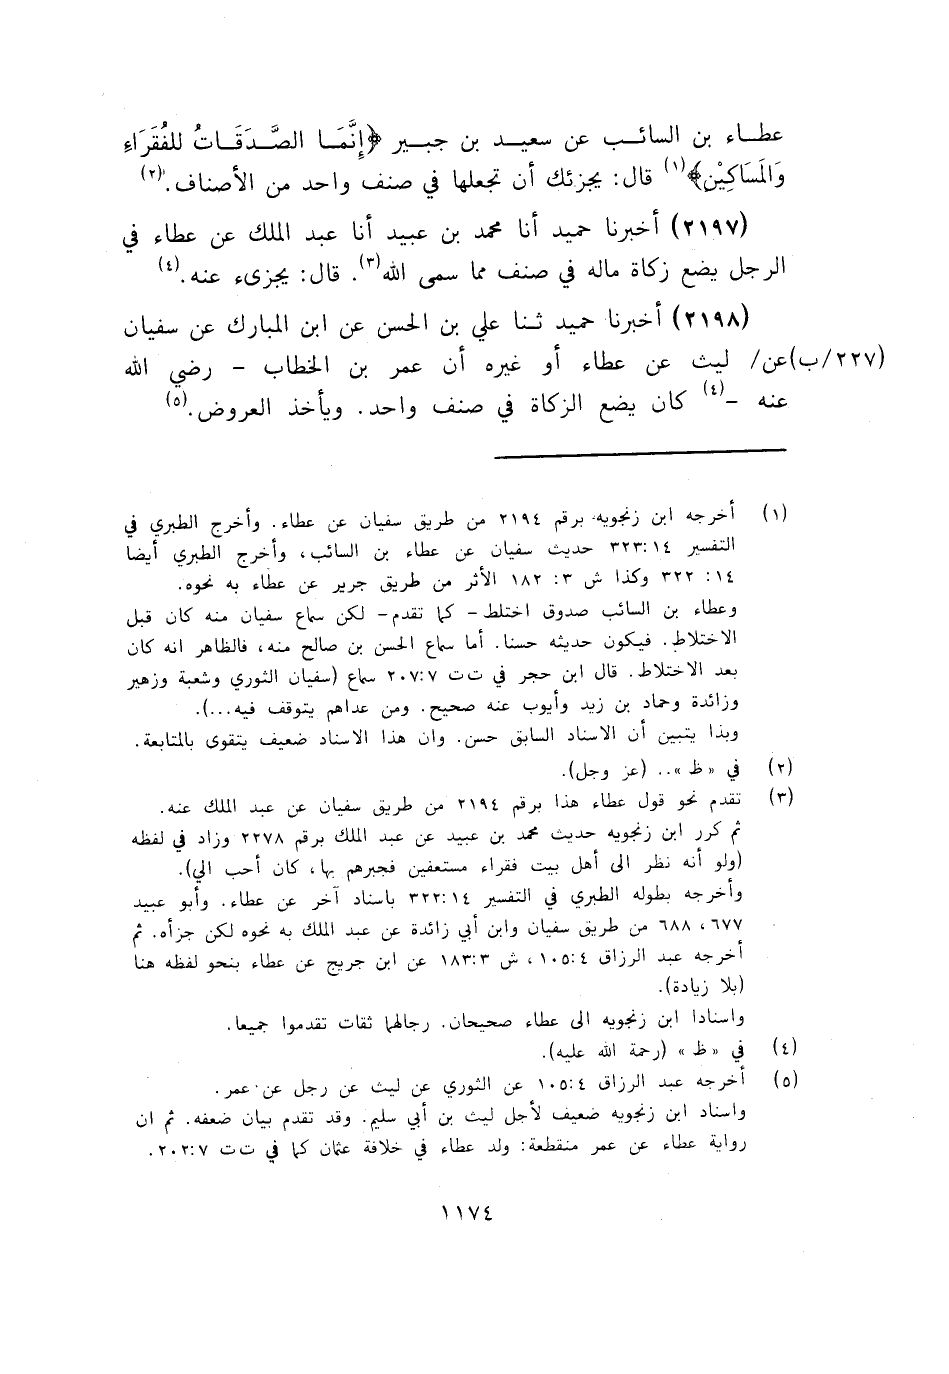 عطاء بن السائب عن سعيد بن جبير ﴿إِنَّمَا الصَّدَقَاتُ للفُقَرَاءِ
وَالمَسَاكِيْن﴾(١) قال: يجزئك أن تجعلها في صنف واحد من الأصناف.(٢)
(٢١٩٧) أخبرنا حميد أنا محمد بن عبيد أنا عبد الملك عن عطاء في
الرجل يضع زكاة ماله في صنف مما سمى الله(٣). قال: يجزىء عنه.(٤)
(٢١٩٨) أخبرنا حميد ثنا علي بن الحسن عن ابن المبارك عن سفيان
(٢٢٧/ب)عن/ ليث عن عطاء أو غيره أن عمر بن الخطاب - رضي الله
عنه -(٤) كان يضع الزكاة في صنف واحد. ويأخذ العروض.(٥)
(١) أخرجه ابن زنجويه برقم ٢١٩٤ من طريق سفيان عن عطاء. وأخرج الطبري في
التفسير ٣٢٣:١٤ حديث سفيان عن عطاء بن السائب، وأخرج الطبري أيضا
١٤: ٣٢٢ وكذا ش ٣: ١٨٢ الأثر من طريق جرير عن عطاء به نحوه.
وعطاء بن السائب صدوق اختلط - كما تقدم - لكن سماع سفيان منه كان قبل
الاختلاط. فيكون حديثه حسنا. أما سماع الحسن بن صالح منه، فالظاهر انه كان
بعد الاختلاط. قال ابن حجر في ت ت ٢٠٧:٧ سماع (سفيان الثوري وشعبة وزهير
وزائدة وحماد بن زيد وأيوب عنه صحيح. ومن عداهم يتوقف فيه...).
وبذا يتبين أن الاسناد السابق حسن. وان هذا الاسناد ضعيف يتقوى بالمتابعة.
(٢) في « ظ ».. (عز وجل).
(٣) تقدم نحو قول عطاء هذا برقم ٢١٩٤ من طريق سفيان عن عبد الملك عنه.
ثم كرر ابن زنجويه حديث محمد بن عبيد عن عبد الملك برقم ٢٢٧٨ وزاد في لفظه
(ولو أنه نظر الى أهل بيت فقراء مستعفين فجبرهم بها، كان أحب الي).
وأخرجه بطوله الطبري في التفسير ٣٢٢:١٤ باسناد آخر عن عطاء. وأبو عبيد
٦٧٧، ٦٨٨ من طريق سفيان وابن أبي زائدة عن عبد الملك به نحوه لكن جزأه. ثم
أخرجه عبد الرزاق ١٠٥:٤، ش ١٨٣:٣ عن ابن جريج عن عطاء بنحو لفظه هنا
(بلا زيادة).
واسنادا ابن زنجويه الى عطاء صحيحان. رجالهما ثقات تقدموا جميعا.
(٤) في « ظ » (رحمة الله عليه).
(٥) أخرجه عبد الرزاق ١٠٥:٤ عن الثوري عن ليث عن رجل عن عمر.
واسناد ابن زنجويه ضعيف لأجل ليث بن أبي سليم. وقد تقدم بيان ضعفه. ثم ان
رواية عطاء عن عمر منقطعة: ولد عطاء في خلافة عثمان كما في ت ت ٢٠٢:٧.
١١٧٤